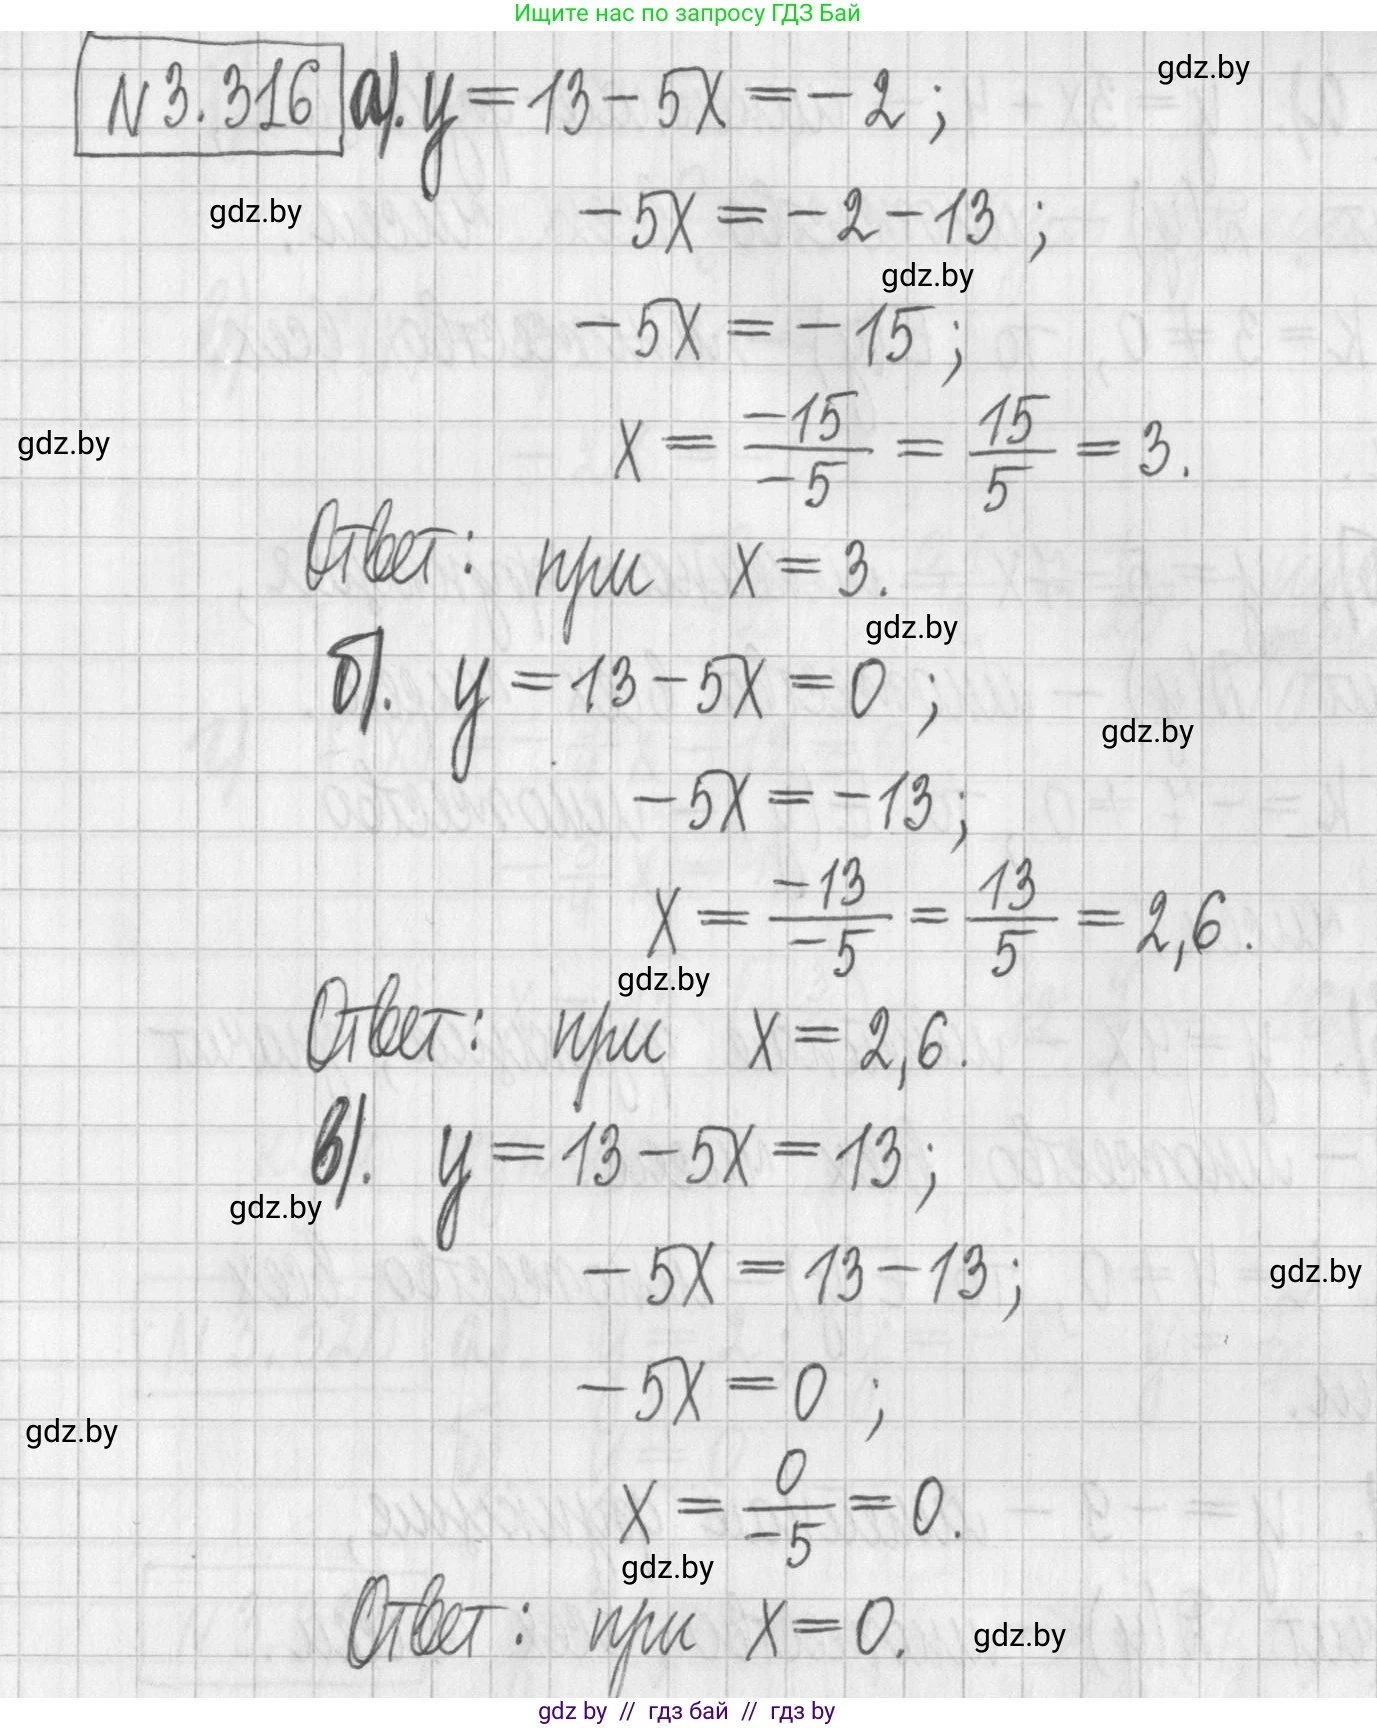 Ищите нас по запросу ГДЗ Бай
N 3.316 а). y = 13 - 5x = -2 ;
gdz.by
gdz.by
-5x = -2 - 13 ;
gdz.by
-5x = -15 ;
gdz.by
x = -15/-5 = 15/5 = 3.
Ответ: при x = 3.
gdz.by
б). y = 13 - 5x = 0 ;
gdz.by
-5x = -13 ;
x = -13/-5 = 13/5 = 2,6.
gdz.by
Ответ: при x = 2,6.
в). y = 13 - 5x = 13 ;
gdz.by
-5x = 13 - 13 ;
gdz.by
-5x = 0 ;
gdz.by
x = 0/-5 = 0.
gdz.by
Ответ: при x = 0.
gdz.by
gdz by // гдз бай // gdz by